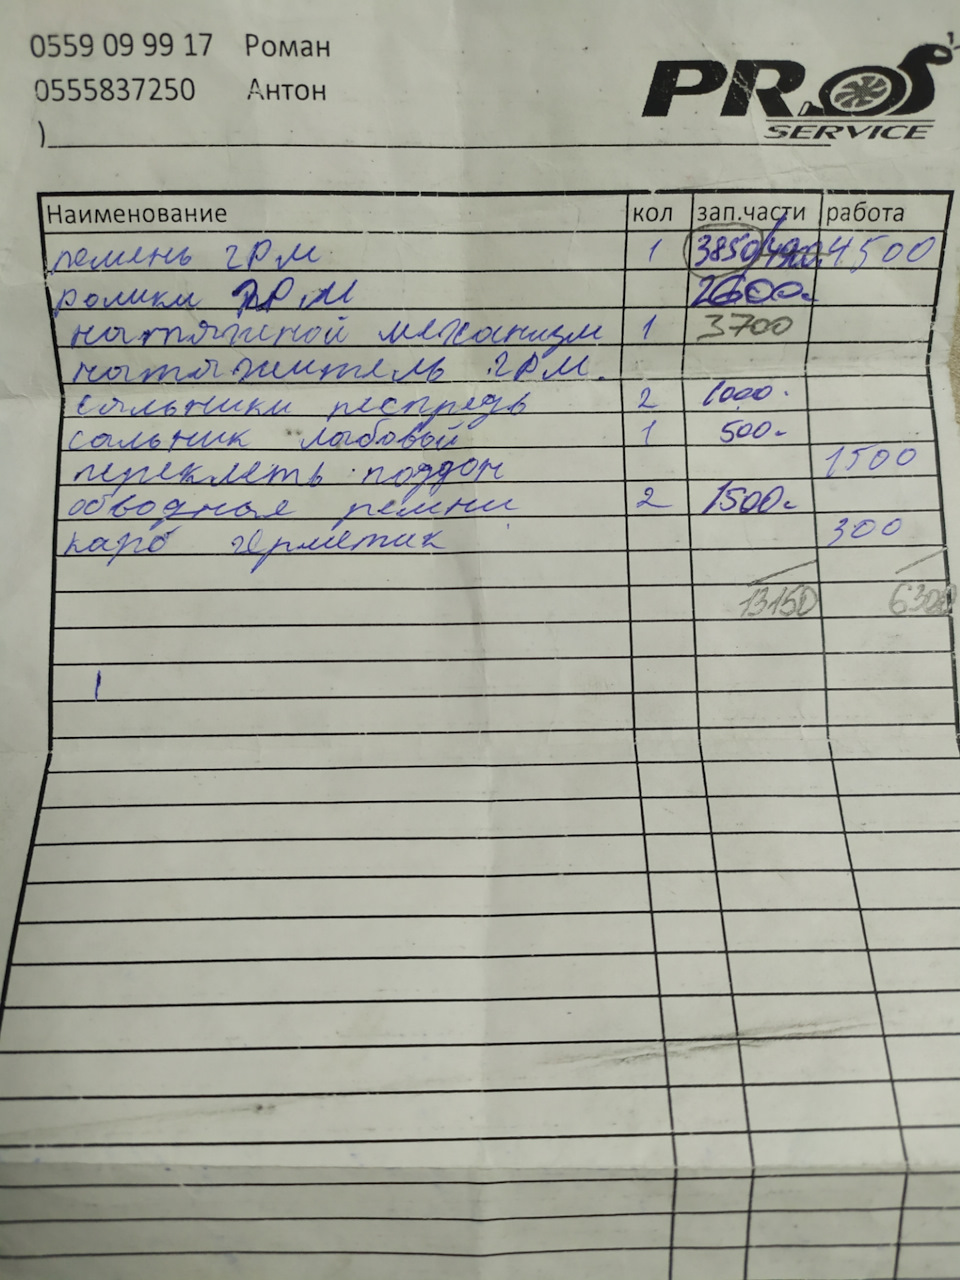 0559 09 99 17 Роман
0555837250 Антон
)
PROS
SERVICE
Наименование кол зап.части работа
ремень ГРМ 1 3850/4900. 4500
ролики ГРМ 2600.
натяжной механизм 1 3700
натяжитель ГРМ.
сальники распредв 2 1000.
сальник лабовой 1 500.
переклеть поддон 1500
обводные ремни 2 1500.
карб герметик 300
13150 6300